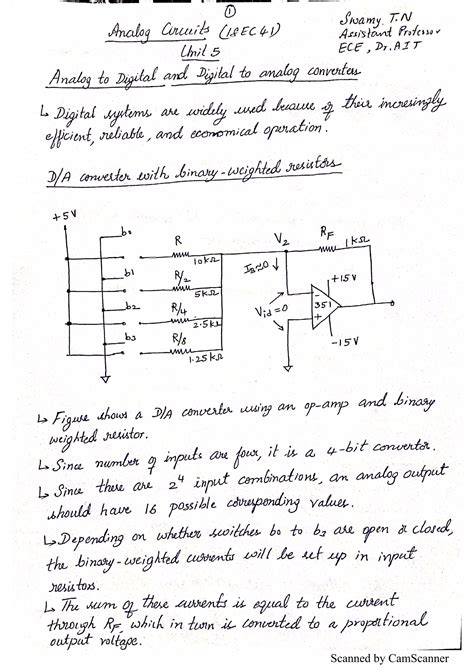 1
Analog Circuits (18EC41)
Swamy. T.N
Assistant Professor
ECE, Dr. AIT
Unit 5
Analog to Digital and Digital to analog converters
↳ Digital systems are widely used because of their incresingly
efficient, reliable, and economical operation.
D/A converter with binary-weighted resistors
+5V
b0
R
10kΩ
b1
R/2
5kΩ
b2
R/4
2.5kΩ
b3
R/8
1.25kΩ
V2
RF
1kΩ
IB≃0
+15V
Vid=0
-
351
+
-15V
↳ Figure shows a D/A converter using an op-amp and binary
weighted resistor.
↳ Since number of inputs are four, it is a 4-bit convertor.
↳ Since there are 2⁴ input combinations, an analog output
should have 16 possible corresponding values.
↳ Depending on whether switches b0 to b3 are open or closed,
the binary-weighted currents will be set up in input
resistors.
↳ The sum of these currents is equal to the current
through RF which in turn is converted to a proportional
output voltage.
Scanned by CamScanner